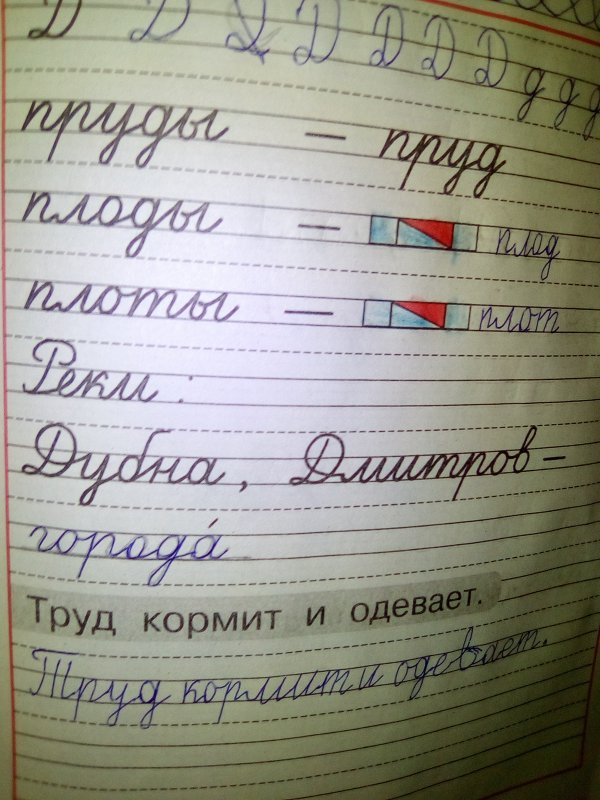 Д Д Д Д Д Д Д д д д
пруды – пруд
плоды – плод
плоты – плот
Реки:
Дубна, Дмитров –
города́
Труд кормит и одевает.
Труд кормит и одевает.